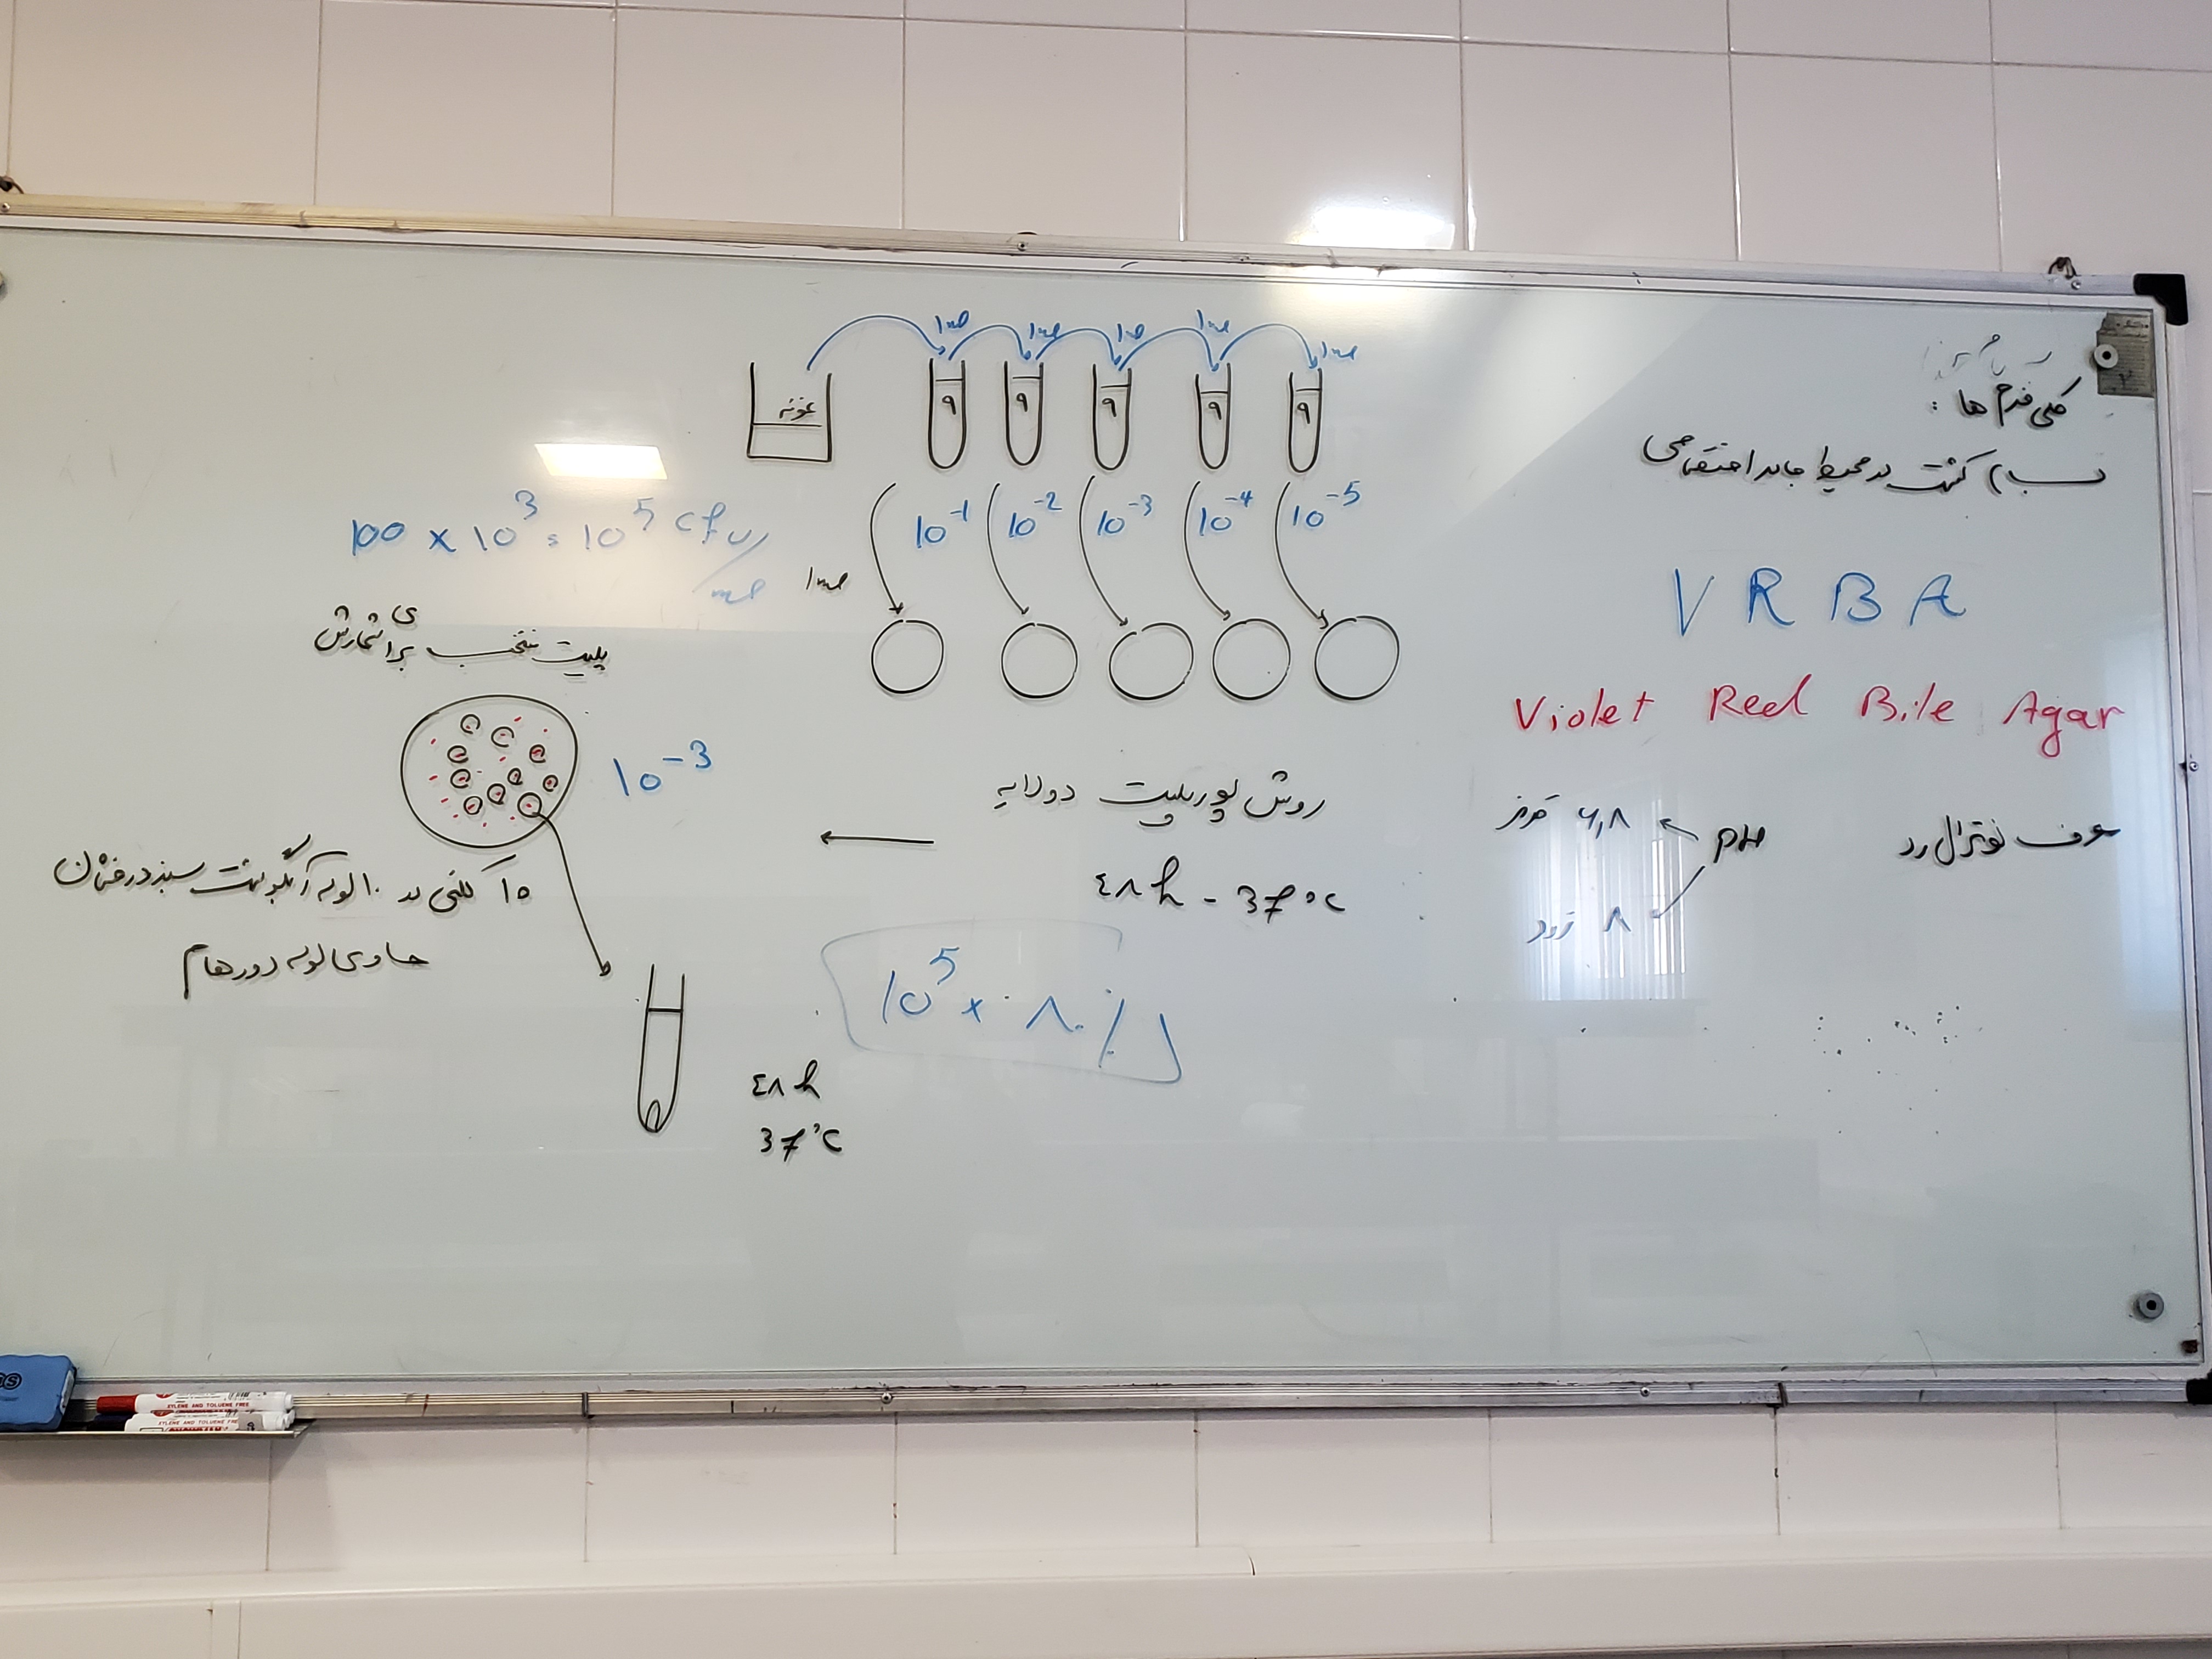 کلی فرم ها :
ب) کشت در محیط جامد اختصاصی
V R B A
Violet Red Bile Agar
معرف نوترال رد
pH
۶,۸ قرمز
۸ زرد
1ml 1ml 1ml 1ml 1ml
نمونه ۹ ۹ ۹ ۹ ۹
10⁻¹ 10⁻² 10⁻³ 10⁻⁴ 10⁻⁵
1ml
روش پورپلیت دولایه
۴۸ h - 37°C
100 × 10³ = 10⁵ cfu/ml
پلیت منتخب برای شمارش
10⁻³
۱۰ کلنی در ۱۰ لوله آبگوشت سبز درخشان
حاوی لوله دورهام
۴۸ h
37°C
10⁵ × ۸۰٪
XYLENE AND TOLUENE FREE